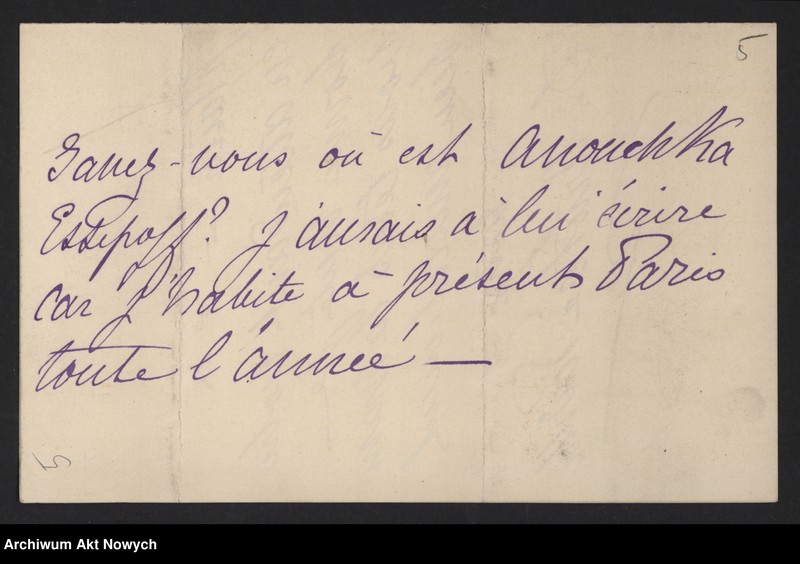 5
Savez-vous où est Anouchka
Essipoff? J'aurais à lui écrire
car j'habite à présent Paris
toute l'année —
5
Archiwum Akt Nowych